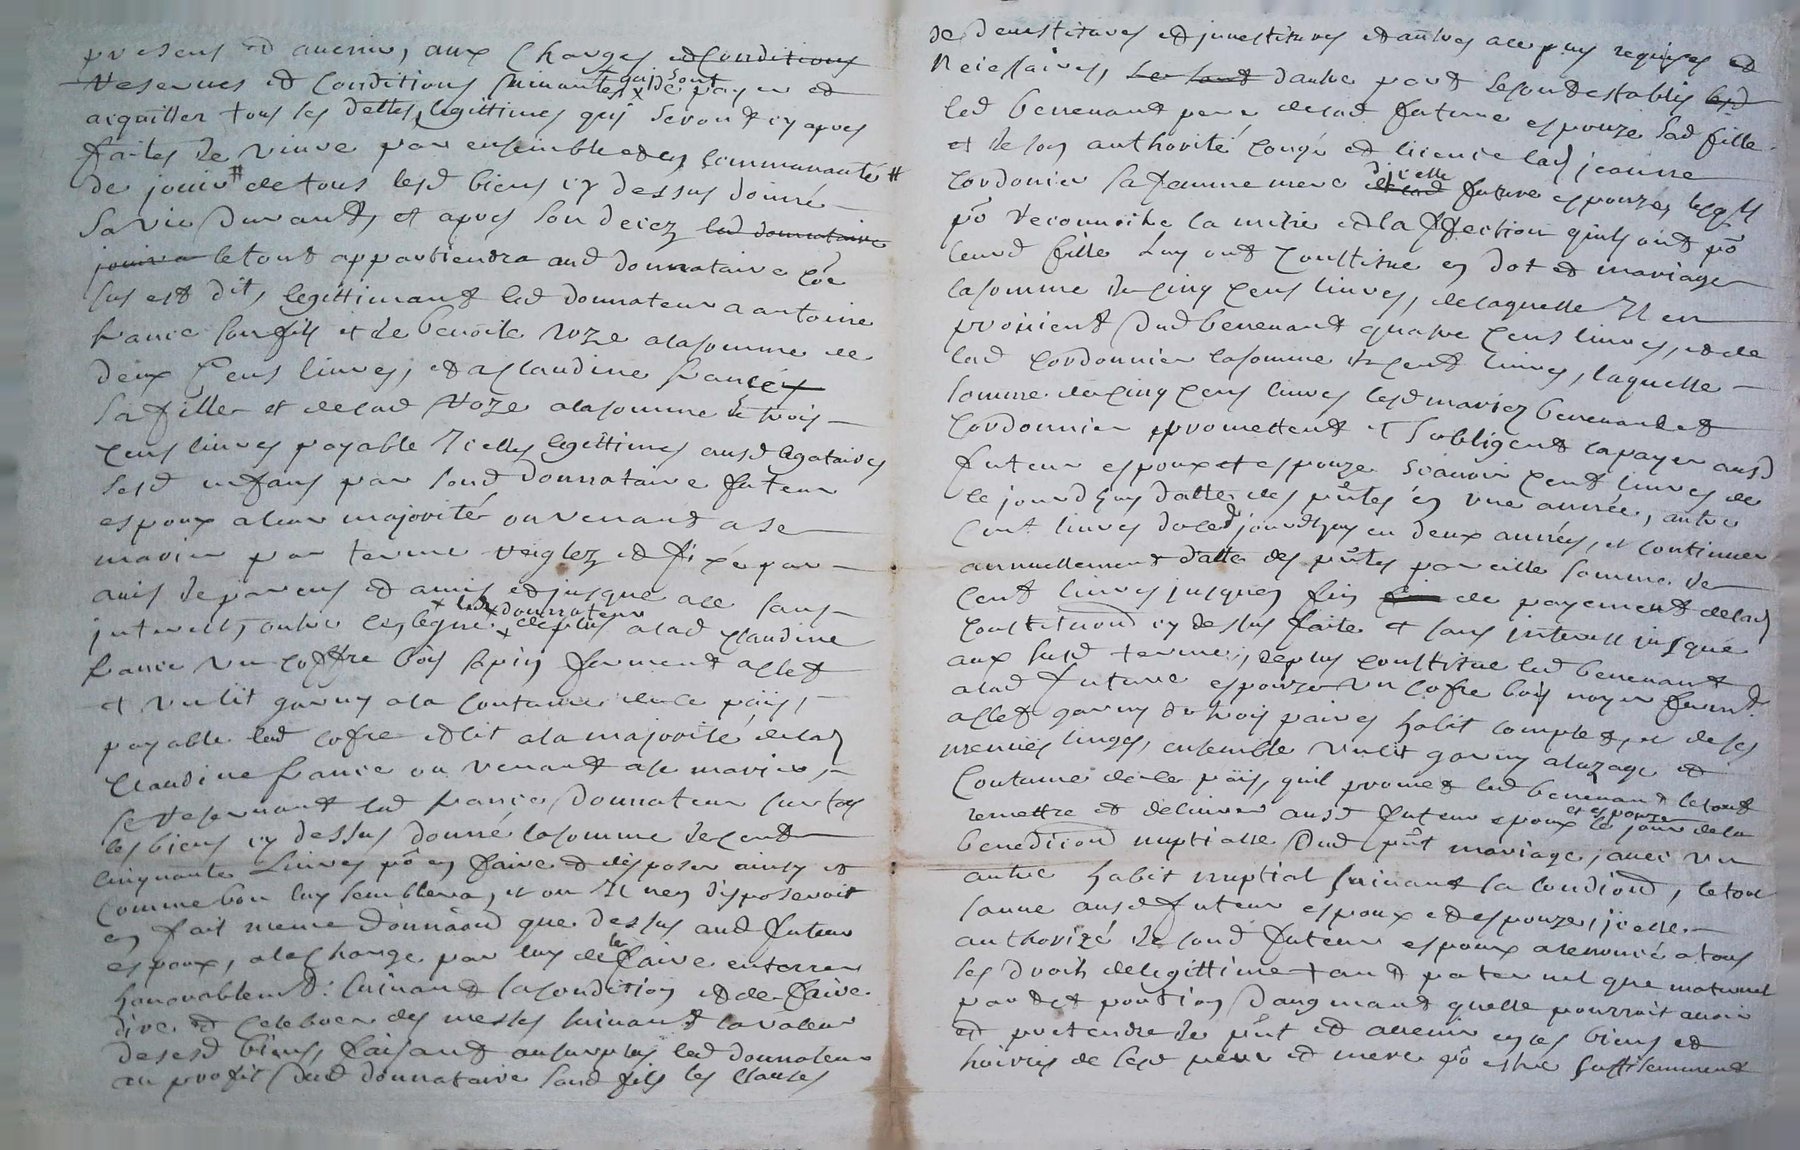 presens et avenir, aux Charges et Conditions
reserves et Conditions suivantes, qui sont de payer et
acquitter tous les dettes, legittimes qui seront cy apres
faites de vivre par ensemble et en communauté #
de jouir # de tous lesd biens cy dessus donné
sa vie Durant, et apres son decez led donnataire
jouira le tout appartiendra aud donnataire coe
sus est dit, legittimant led donnateur a antoine
france son fils et de benoite roze a la somme de
deux Cens livres, et a Claudine france
sa fille et de lad Roze a la somme de trois
cens livres payable Icelles legittimes ausd legataires
sesd enfans par sond donnataire futeur
espoux a leur majorité ou venant a se
marier par terme reiglez et fixé par
avis de parens et amis et jusque a ce sans
interest, outre ce, legue led donnateur de plus a lad Claudine
france un coffre bois sapin fermant a clef
et un lit garny a la coutume de ce païs,
payable led cofre et lit a la majorité de lad
Claudine france ou venant a se marier,
se reservant led france Donnateur sur tous
les biens cy dessus donné la somme de cent
cinquante Livres po en faire et disposer ainsy et
Comme bon luy semblera, et ou Il n'en disposeroit
en fait meme donnaõn que dessus aud futeur
espoux, a la charge par luy de le faire enterrer
honorablemt: suivant sa condition et de faire
dire et celebrer des messes suivant la valeur
de sesd biens, faisant au surplus led donnateur
au profit dud donnataire sond fils les clauses
de devestitures et investitures et autres a ce pns requises et
Necessaires, Se sont dautre part se sont establis lesd
led benevant pere de lad future espouze sad fille
et de son authorité congé et licence lad jeanne
Cordonier sa femme mere d'icelle et lad future espouze, lesqls
po reconnoitre la mitie et la ffection quils ont po
leurd fille luy ont Constitué en dot et mariage
la somme de cinq cens livres, de laquelle Il en
provient Dud benevant quatre cens livres, et de
lad Cordonnier la somme de cent livres, laquelle
somme de cinq cens livres lesd mariez benevant et
Cordonnier promettent et s'obligent la payer ausd
futeur espoux et espouze scavoir cent livres de
ce jourdhuy datte des pñtes en une année, autre
Cent livres dece djourdhuy en deux années, et continuer
annuellement datte des pñtes pareille somme de
cent livres jusques fin de payement de lad
Constituõn cy dessus faite et sans interest jusque
aux susd terme, deplus constitue led benevant
a lad future espouze un cofre bois noyer fermt
a clef garny de trois paires habit complet, et de ses
menues linges, ensemble un lit garny a luzage et
Coutume de ce païs, quil promet led benevant le tout
remettre et delivrer ausd futeur epoux et espouze le jour de la
benediciõn nuptialle Dud pñt mariage, avec un
autre habit nuptial suivant sa condiõn, le tout
sauve ausd futeur espoux et espouze, icelle
authorizé de sond futeur espoux a renoncé a tous
les droits de legittime tant paternel que maternel
part et portion Daugmant quelle pourroit avoir
et pretendre de pñt et avenir en les biens et
hoiries de sesd pere et mere po estre suffisemment